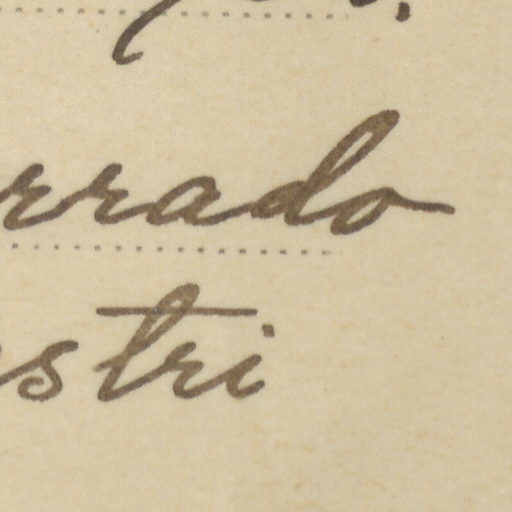 rrado
stri